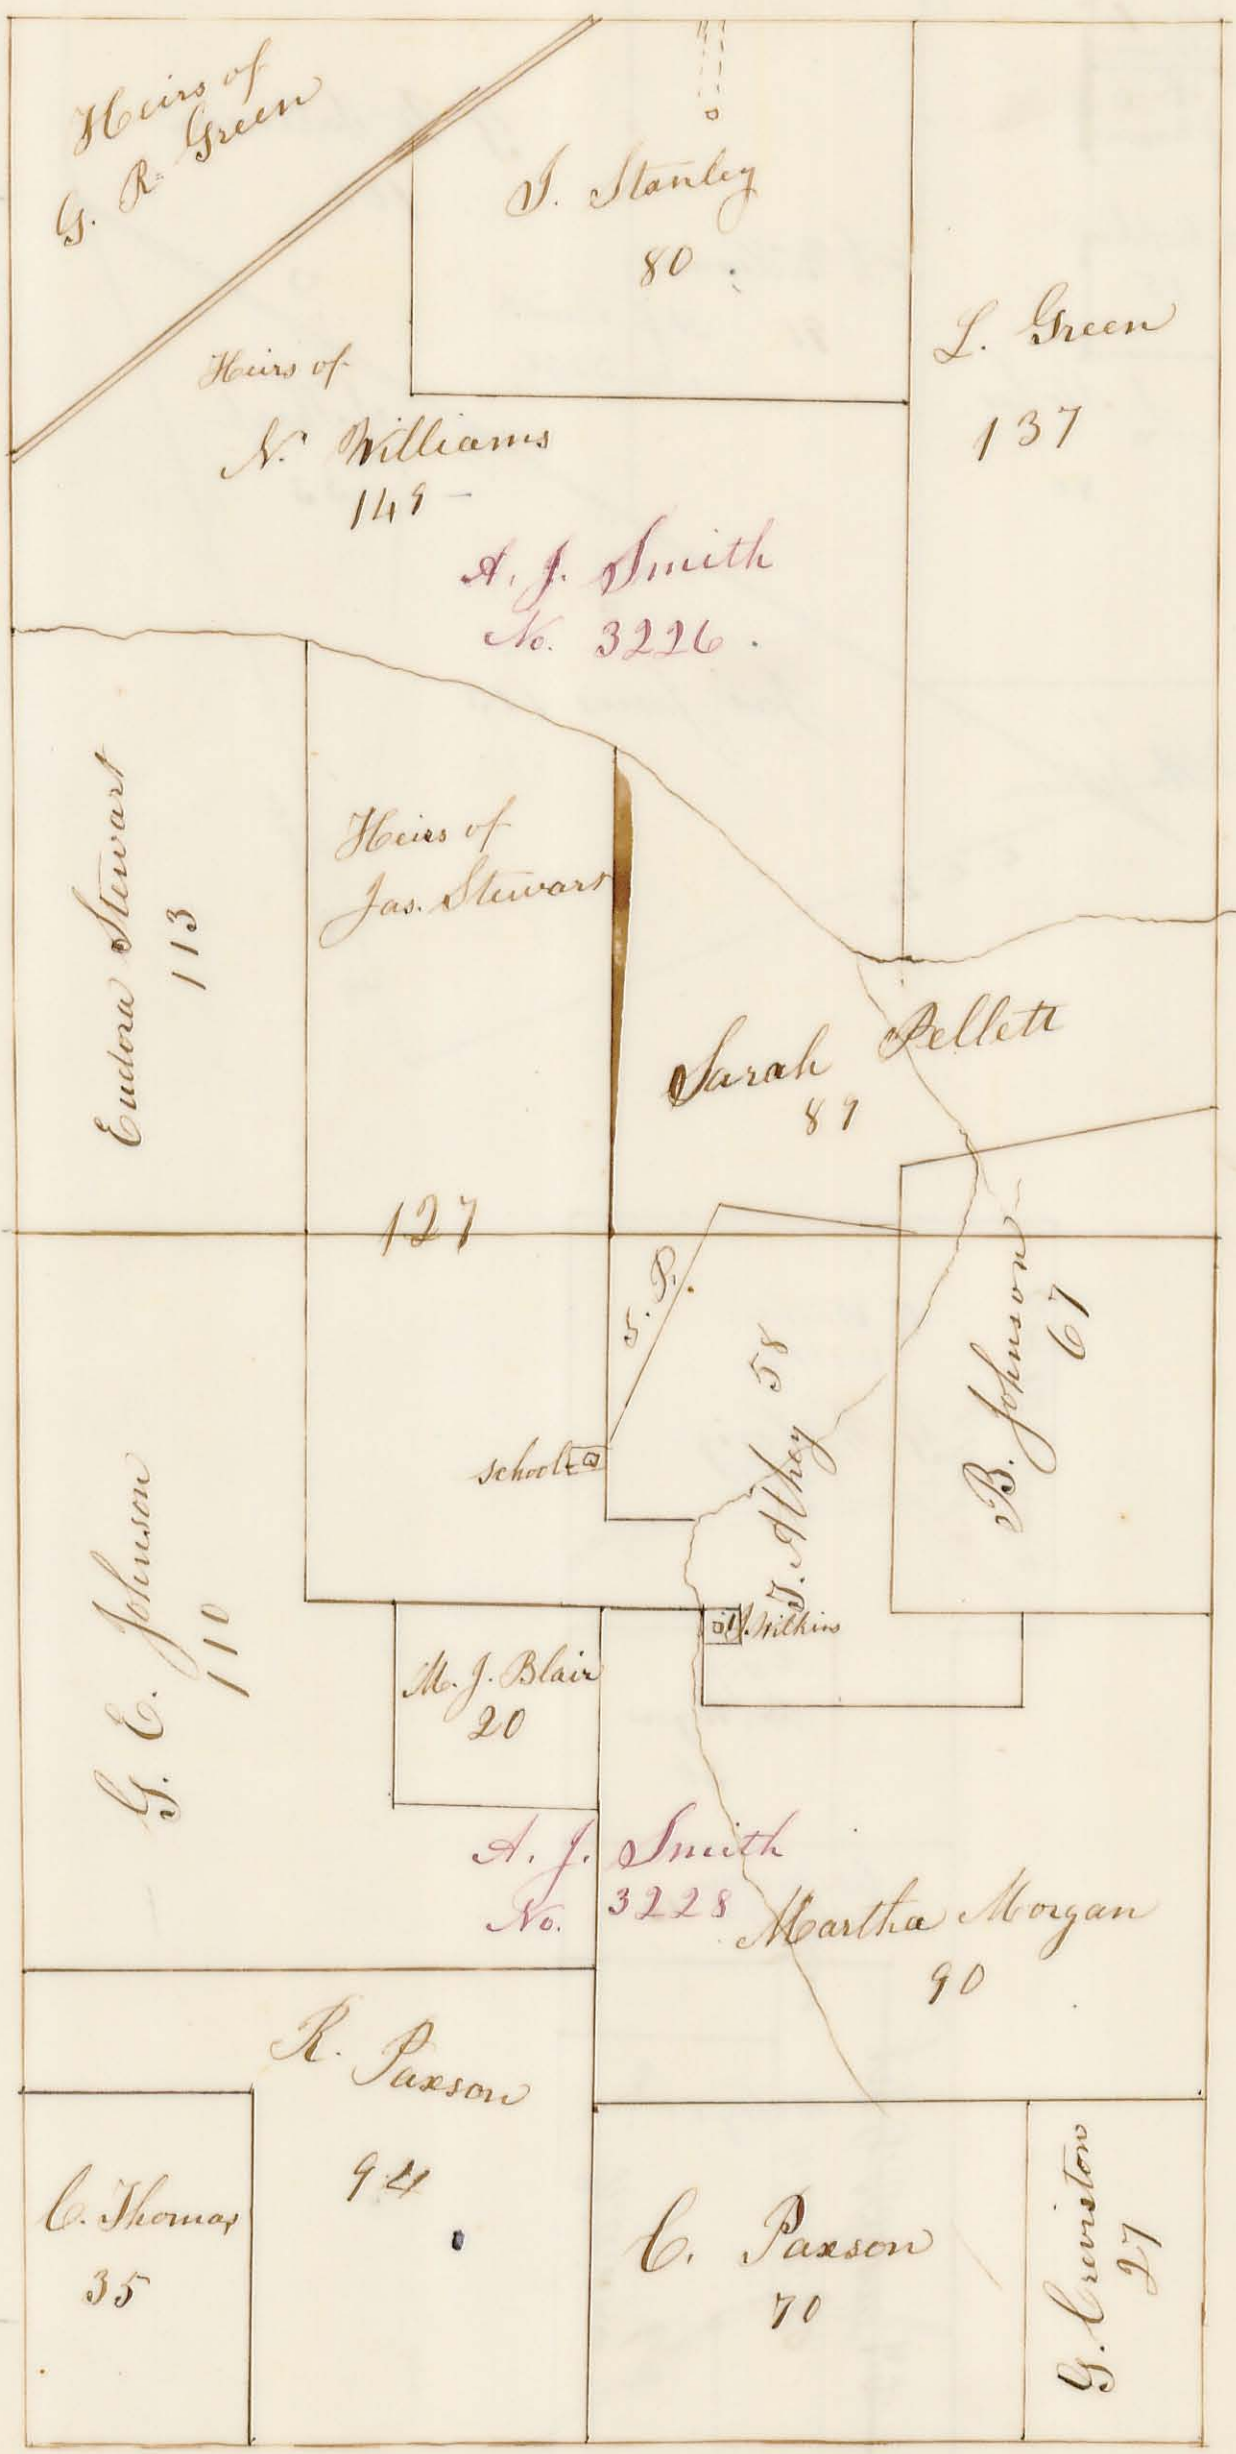 Heirs of
G. R. Green
J. Stanley
80
L. Green
137
Heirs of
N. Williams
149
A. J. Smith
No. 3226.
Eudora Stewart
113
Heirs of
Jas. Stewart
127
Sarah Pellett
89
S. P.
58
B. Johnson
67
School
J. Wilkins
G. E. Johnson
110
M. J. Blair
20
A. J. Smith
No. 3228
Martha Morgan
90
R. Paxson
94
C. Thomas
35
C. Paxson
70
G. Creviston
27